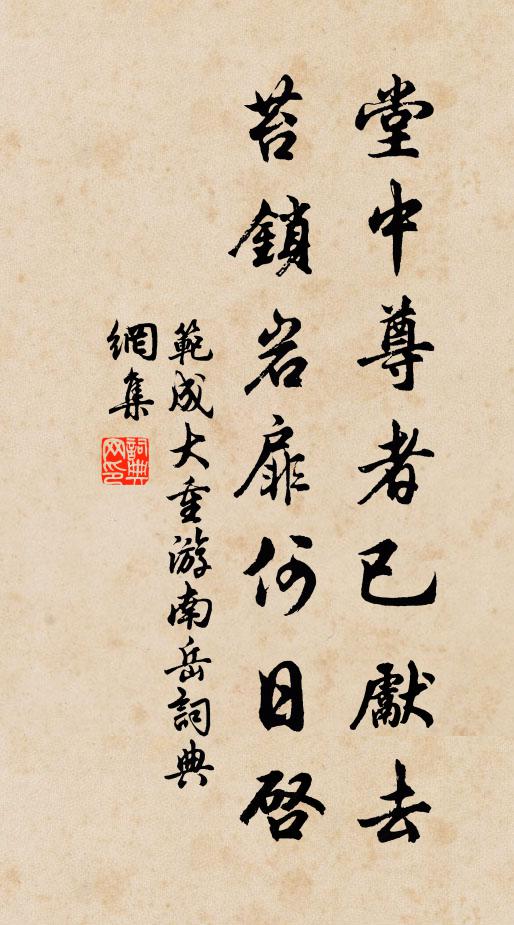 堂中尊者已獻去
苔鎖岩扉何日啓
範成大重游南岳詞典
網集
詞典
网印